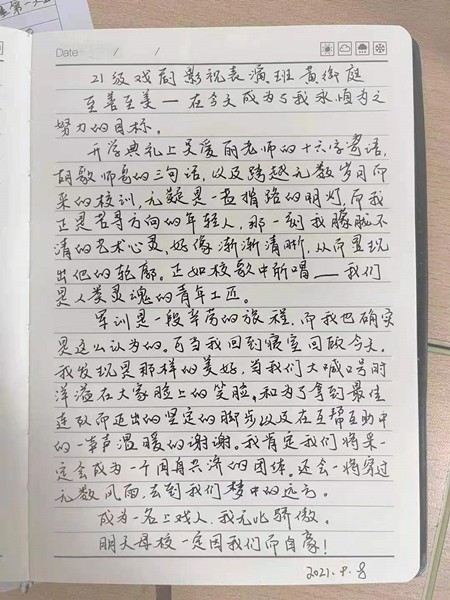 Date / /
21级戏剧影视表演班黄衡庭
至善至美一在今天成为了我永恒为之
努力的目标。
开学典礼上吴爱丽老师的十六字寄语,
胡歌师哥的三句话,以及跨越无数岁月而
来的校训,无疑是一盏指路的明灯,而我
正是君寻方向的年轻人,那一刻我朦胧不
清的艺术心灵,好像渐渐清晰,从而显现
出他的轮廓。正如校歌中所唱——我们
是人类灵魂的青年工匠。
军训是一段辛劳的旅程,而我也确实
是这么认为的。可当我回到寝室回顾今天,
我发现是那样的美好,当我们大喊口号时
洋溢在大家脸上的笑脸,和为了拿到最佳
连队而迈出的坚定的脚步以及在互帮互助中
的一声声温暖的谢谢。我肯定我们将来一
定会成为一个同舟共济的团体。还会一将穿过
无数风雨,去到我们梦中的远方。
成为一名上戏人,我无比骄傲。
明天母校一定因我们而自豪!
2021.9.8